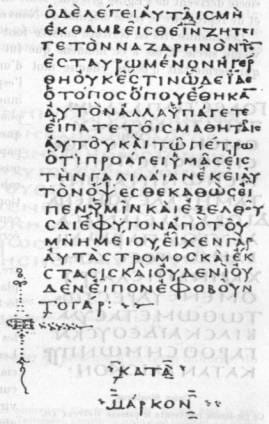 ΟΔΕΛΕΓΕΙΑΥΤΑΙϹΜΗ
ΕΚΘΑΜΒΕΙϹΘΕΙΝΖΗΤΕΙ
ΤΕΤΟΝΝΑΖΑΡΗΝΟΝΤΟ
ΕϹΤΑΥΡΩΜΕΝΟΝΗΓΕΡ
ΘΗΟΥΚΕϹΤΙΝΩΔΕΙΔΕ
ΟΤΟΠΟϹΟΠΟΥΕΘΗΚΑ
ΑΥΤΟΝΑΛΛΑΥΠΑΓΕΤΕ
ΕΙΠΑΤΕΤΟΙϹΜΑΘΗΤΑΙϹ
ΑΥΤΟΥΚΑΙΤΩΠΕΤΡΩ
ΟΤΙΠΡΟΑΓΕΙΥΜΑϹΕΙϹ
ΤΗΝΓΑΛΙΛΑΙΑΝΕΚΕΙΑΥ
ΤΟΝΟΨΕϹΘΕΚΑΘΩϹΕΙ
ΠΕΝΥΜΙΝΚΑΙΕΞΕΛΘΟΥ
ϹΑΙΕΦΥΓΟΝΑΠΟΤΟΥ
ΜΝΗΜΕΙΟΥΕΙΧΕΝΓΑΡ
ΑΥΤΑϹΤΡΟΜΟϹΚΑΙΕΚ
ϹΤΑϹΙϹΚΑΙΟΥΔΕΝΙΟΥ
ΔΕΝΕΙΠΟΝΕΦΟΒΟΥΝ
ΤΟΓΑΡ:
ΚΑΤΑ
ΜΑΡΚΟΝ